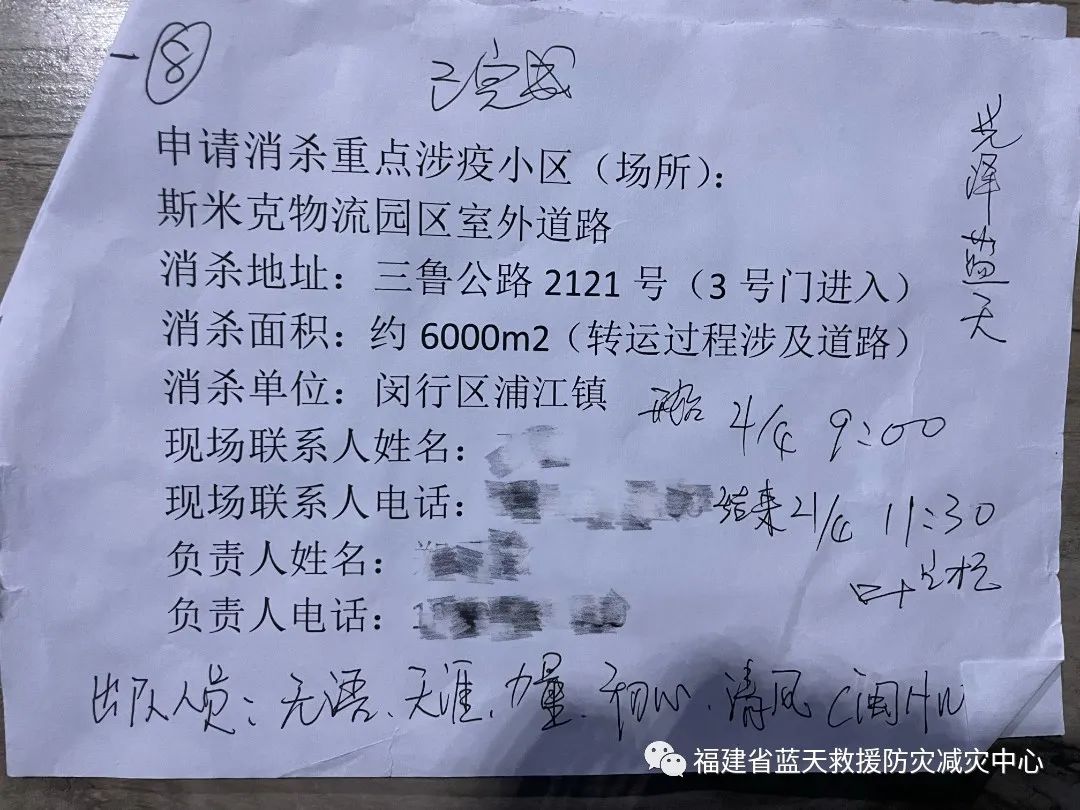 ⑧
已完成
光泽蓝天
申请消杀重点涉疫小区（场所）：
斯米克物流园区室外道路
消杀地址：三鲁公路 2121 号（3 号门进入）
消杀面积：约 6000m2（转运过程涉及道路）
消杀单位：闵行区浦江镇
开始 21/4 9:00
现场联系人姓名：
现场联系人电话：
结束 21/4 11:30
负责人姓名：
叶
负责人电话：1
出队人员：无语、天涯、力量、初心、清风
福建省蓝天救援防灾减灾中心